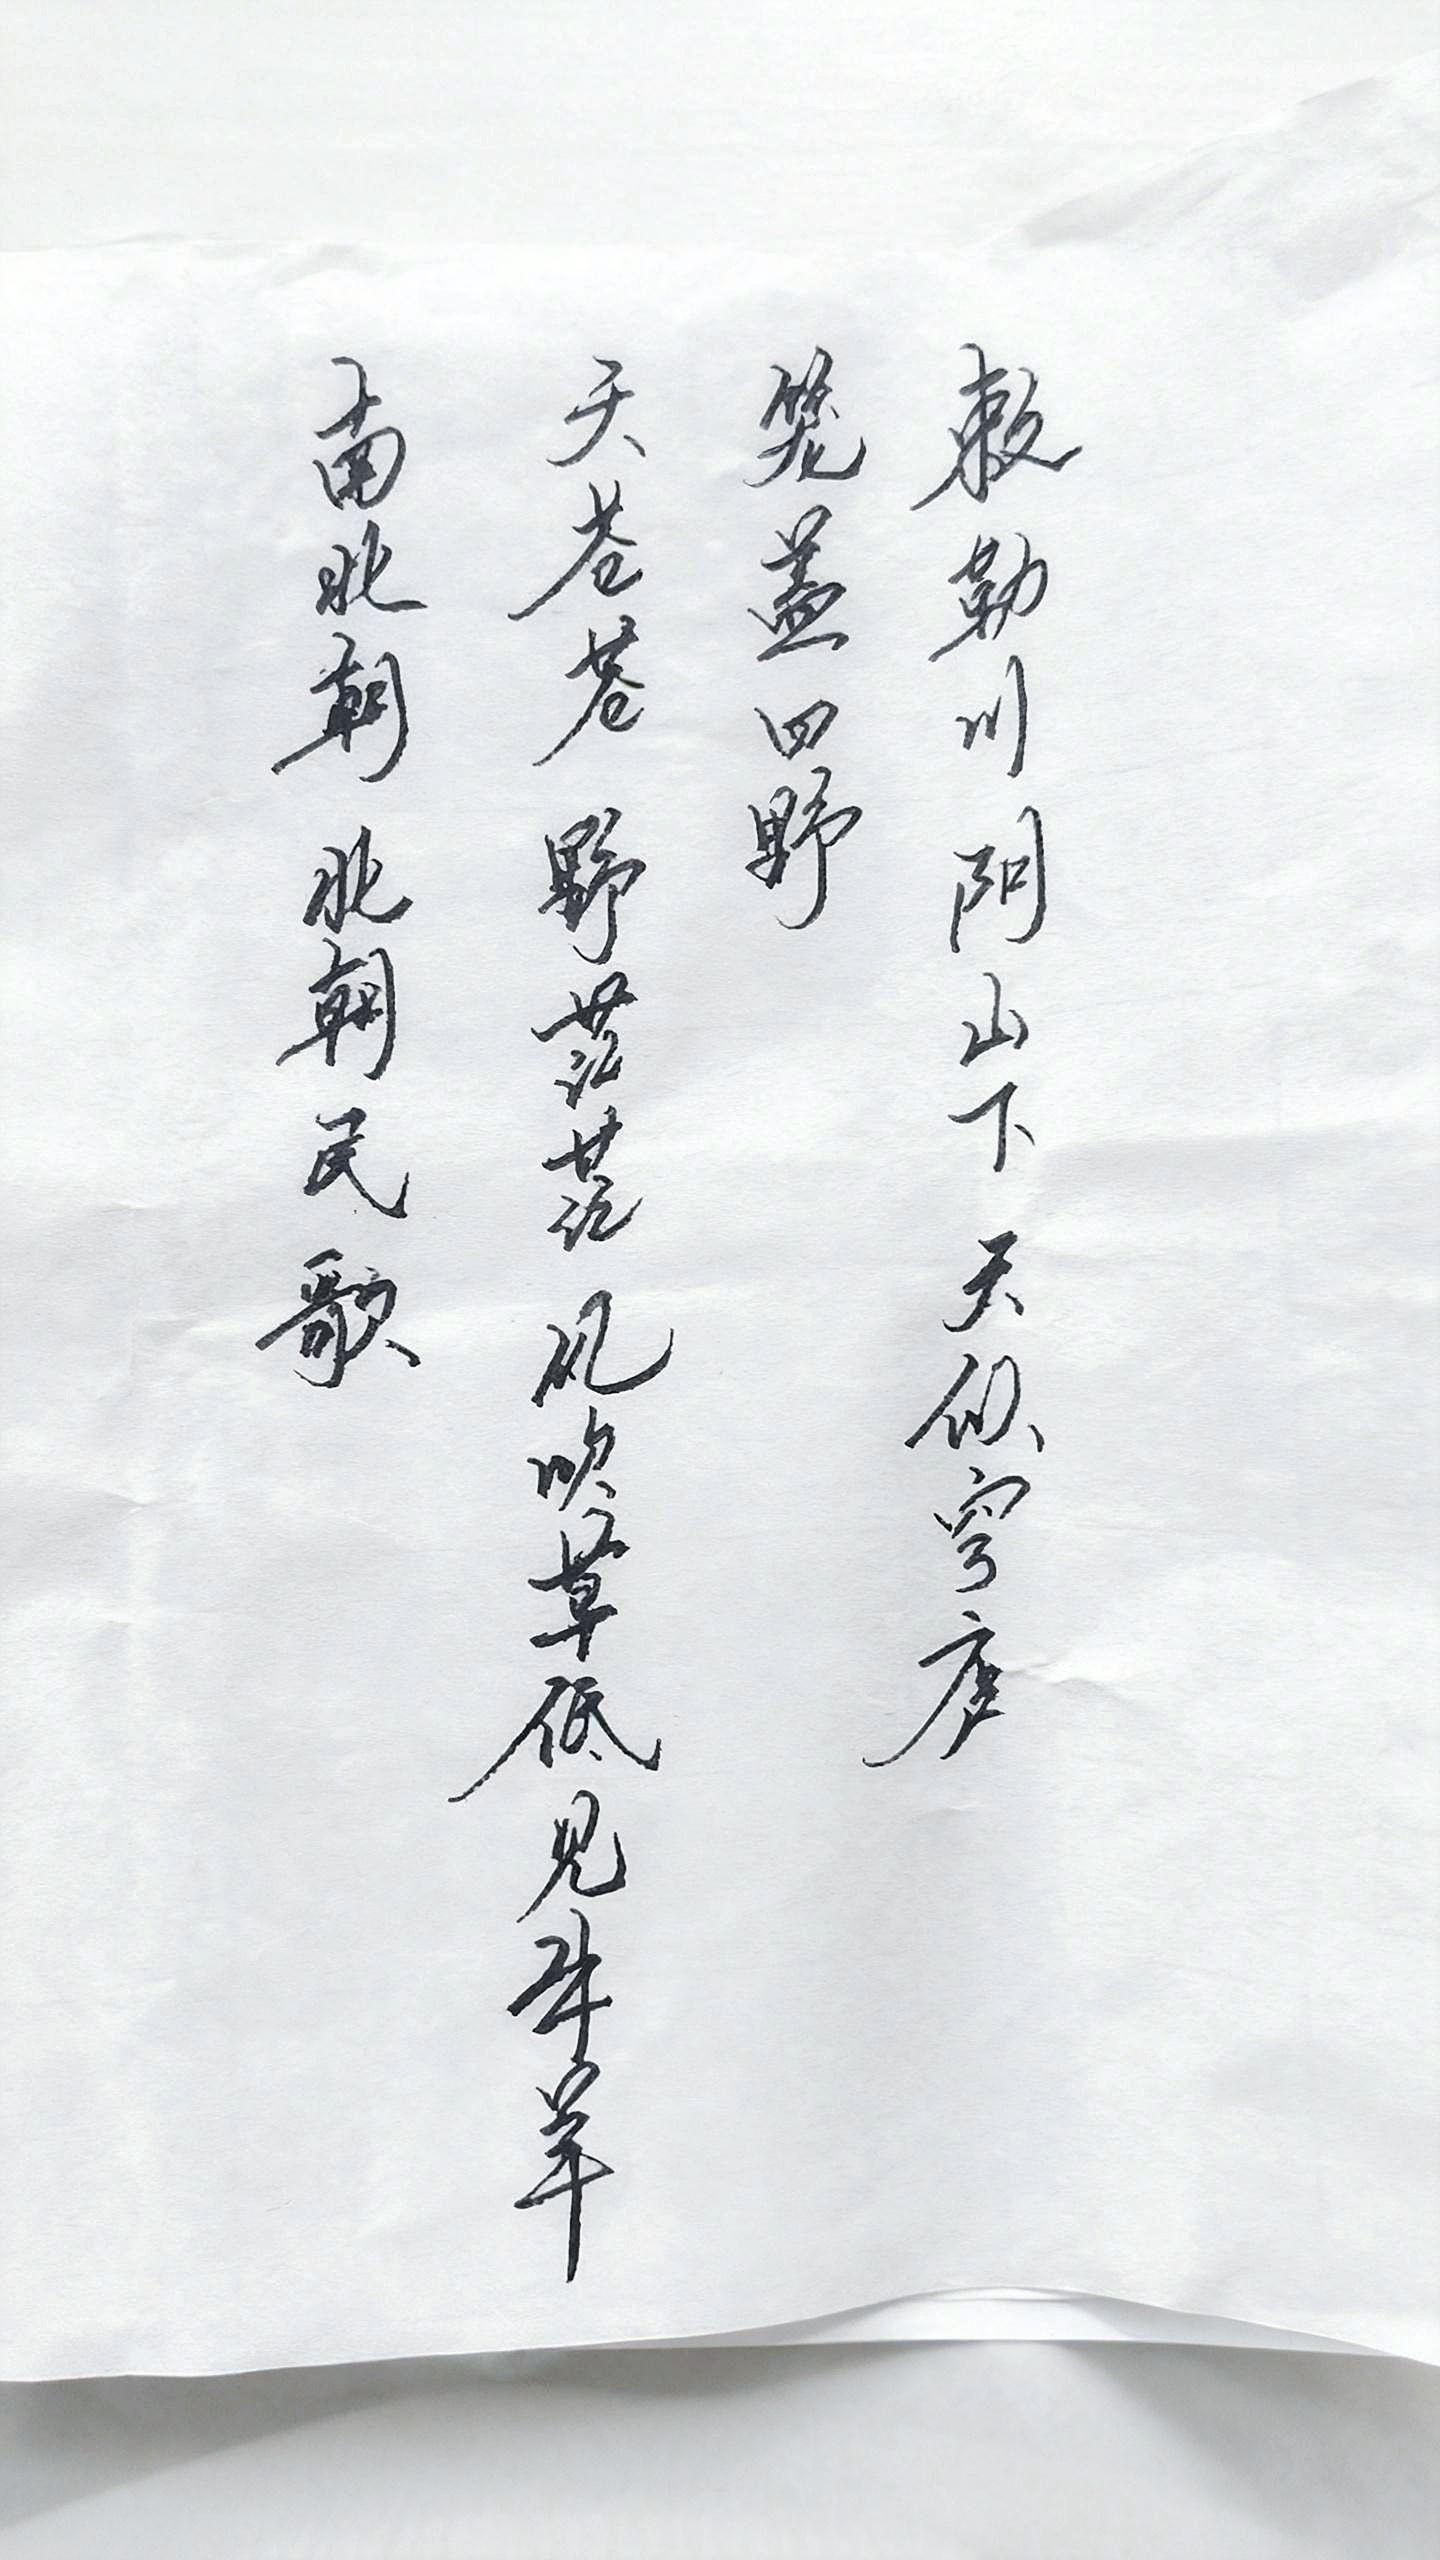 敕勒川阴山下 天似穹庐
笼盖四野
天苍苍 野茫茫 风吹草低见牛羊
南北朝 北朝民歌